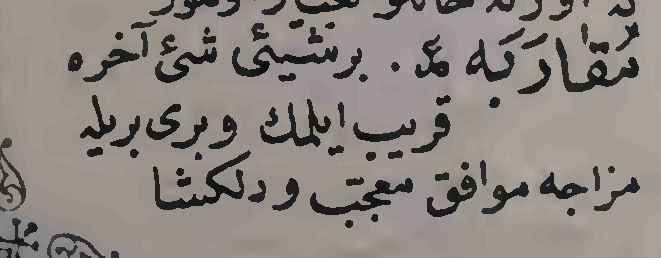 مُقَارَبَه مد. برشیئی شئ آخره
قریب ایلمك وبری بریله
مزاجه موافق معجب ودلکشا